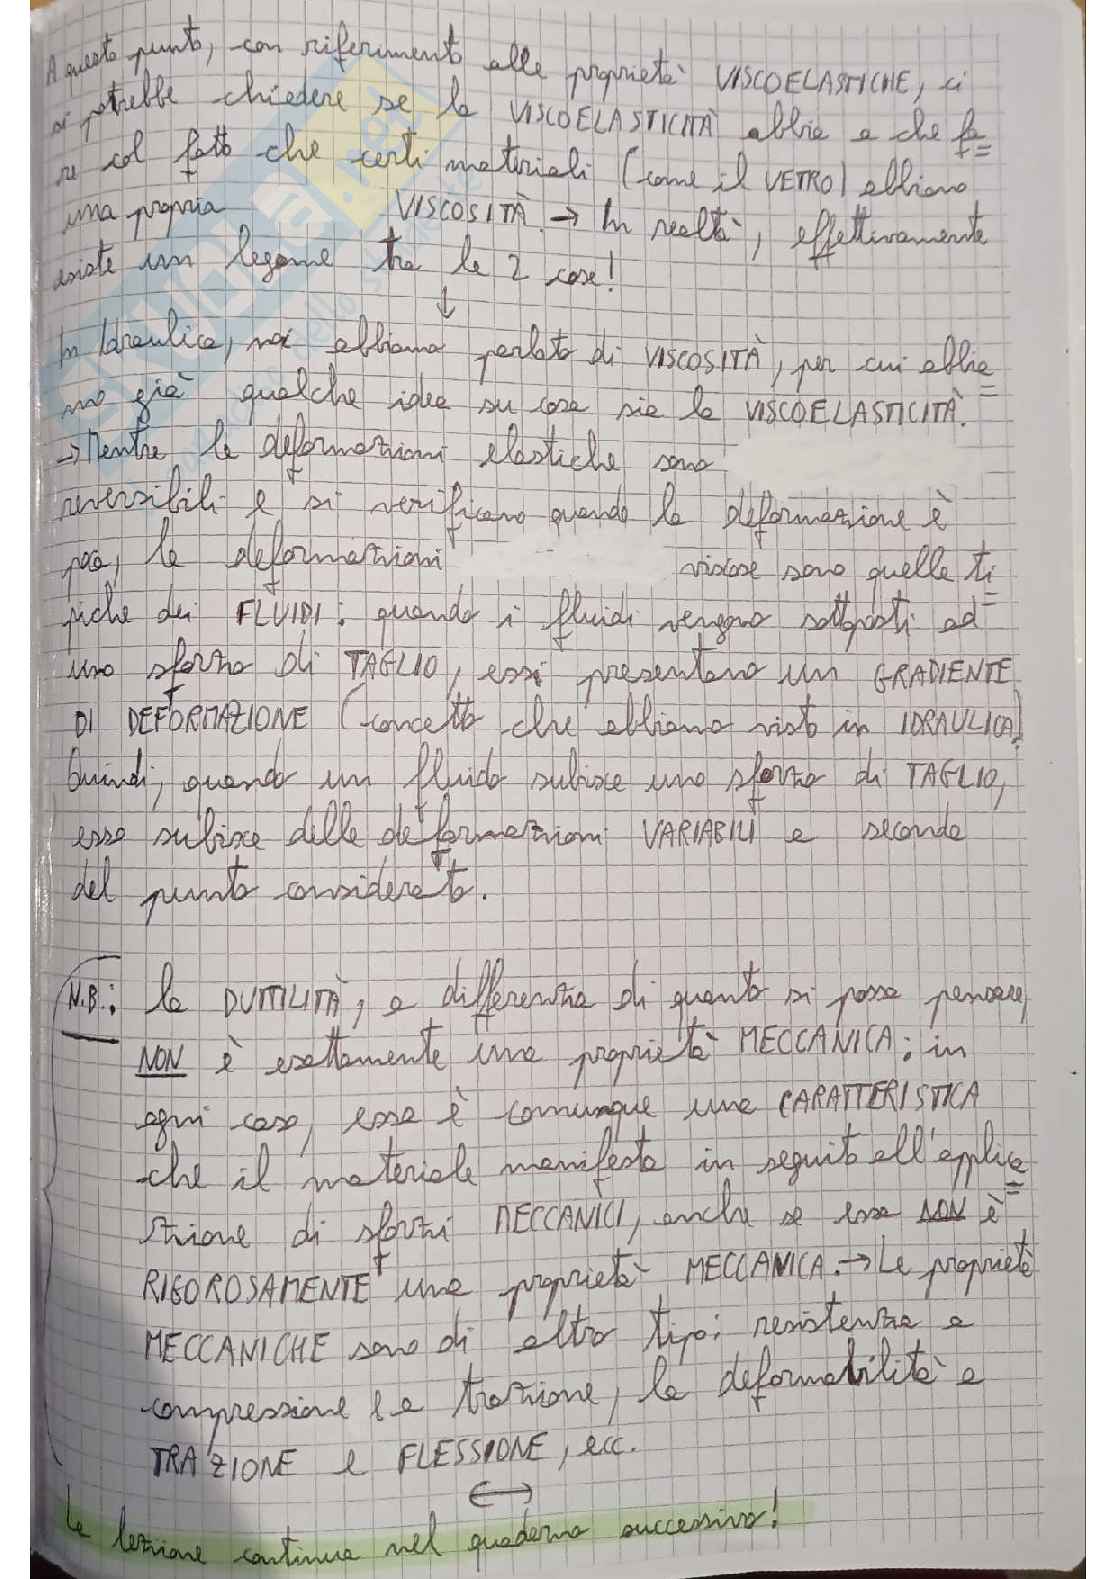 A questo punto, con riferimento alle proprietà VISCOELASTICHE, ci
si potrebbe chiedere se la VISCOELASTICITÀ abbia a che fa=
re col fatto che certi materiali (come il VETRO) abbiano
una propria VISCOSITÀ. → In realtà, effettivamente
esiste un legame tra le 2 cose!
↓
In Idraulica, noi abbiamo parlato di VISCOSITÀ, per cui abbia=
mo già qualche idea su cosa sia la VISCOELASTICITÀ.
→ Mentre le deformazioni elastiche sono
reversibili e si verificano quando la deformazione è
poca, le deformazioni viscose sono quelle ti=
piche dei FLUIDI: quando i fluidi vengono sottoposti ad
uno sforzo di TAGLIO, essi presentano un GRADIENTE
DI DEFORMAZIONE (concetto che abbiamo visto in IDRAULICA).
Quindi, quando un fluido subisce uno sforzo di TAGLIO,
esso subisce delle deformazioni VARIABILI a seconda
del punto considerato.
N.B.: la DUTTILITÀ, a differenza di quanto si possa pensare,
NON è esattamente una proprietà MECCANICA: in
ogni caso, essa è comunque una CARATTERISTICA
che il materiale manifesta in seguito all'applica=
zione di sforzi MECCANICI, anche se essa NON è
RIGOROSAMENTE una proprietà MECCANICA. → Le proprietà
MECCANICHE sono di altro tipo: resistenza a
compressione e a trazione, la deformabilità a
TRAZIONE e FLESSIONE, ecc.
↔
La lezione continua nel quaderno successivo!